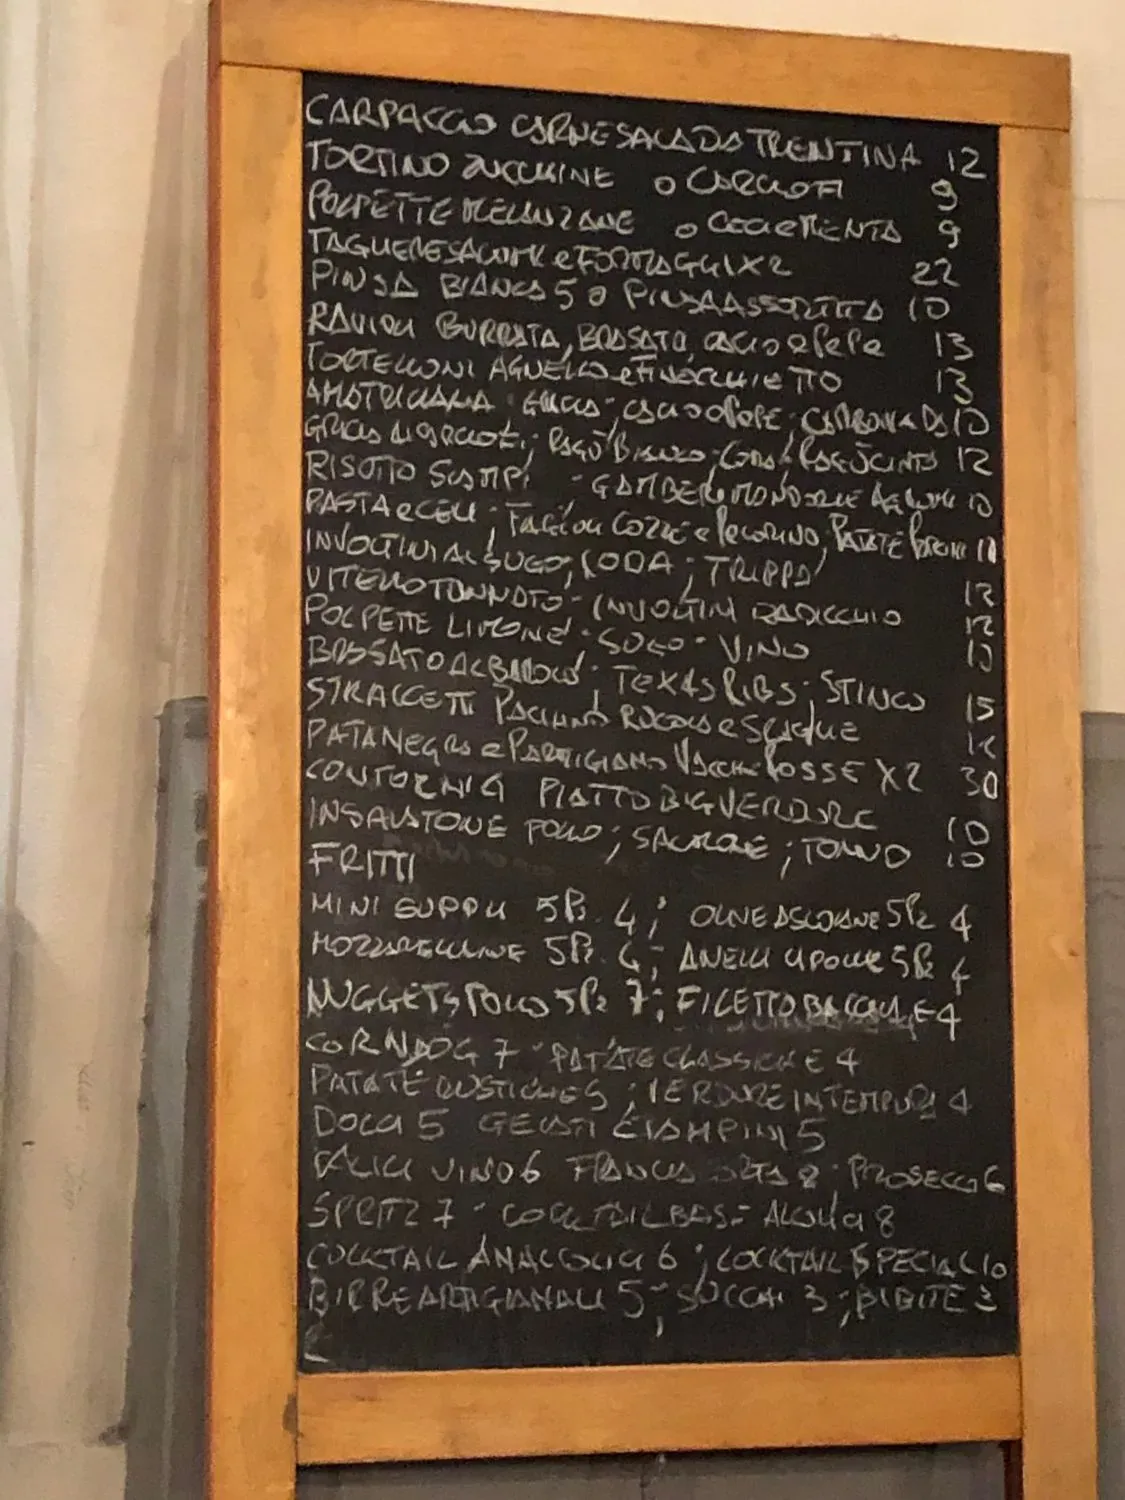 CARPACCIO CARNE SALADA TRENTINA 12
TORTINO ZUCCHINE O CARCIOFI 9
POLPETTE MELANZANE O CECI e MENTA 9
TAGLIERE SALUMI e FORMAGGI X2 22
PINSA BIANCA 5 O PINSA ASSORTITA 10
RAVIOLI BURRATA, BRASATO, CACIO e PEPE 13
TORTELLONI AGNELLO e FINOCCHIETTO 13
AMATRICIANA - GRICIA - CACIO e PEPE - CARBONARA DA 10
GRICIA AI CARCIOFI; RAGÙ BIANCO; CODA; 12
RISOTTO SCAMPI - GAMBERI MANDORLE AGRUMI 10
PASTA e CECI; FAGIOLI COZZE e PECORINO; PATATE 11
INVOLTINI AL SUGO; CODA; TRIPPA 12
VITELLO TONNATO - INVOLTINI RADICCHIO 12
POLPETTE LIMONE - SUGO - VINO 10
BRASATO AL BAROLO - TEXAS RIBS; STINCO 15
STRACCETTI PACHINO RUCOLA e SCAGLIE 12
PATA NEGRA e PARMIGIANO VACCHE ROSSE X2 30
CONTORNI 4 PIATTO BIG VERDURE 10
INSALATONE POLLO; SALMONE; TONNO 10
FRITTI
MINI SUPPLI 5Pz. 4; OLIVE ASCOLANE 5Pz 4
MOZZARELLINE 5Pz. 4; ANELLI CIPOLLE 5Pz 4
NUGGETS POLLO 5Pz 7; FILETTO BACCALÀ E 4
CORNDOG 7 - PATATE CLASSICHE 4
PATATE RUSTICHE 5; VERDURE IN TEMPURA 4
DOLCI 5 GELATI GIAMPINI 5
CALICI VINO 6 FRANCIACORTA 8 - PROSECCO 6
SPRITZ 7 - COCKTAIL BASE ALCOLICI 8
COCKTAIL ANALCOLICI 6; COCKTAIL SPECIAL 10
BIRRE ARTIGIANALI 5; SUCCHI 3; BIBITE 3